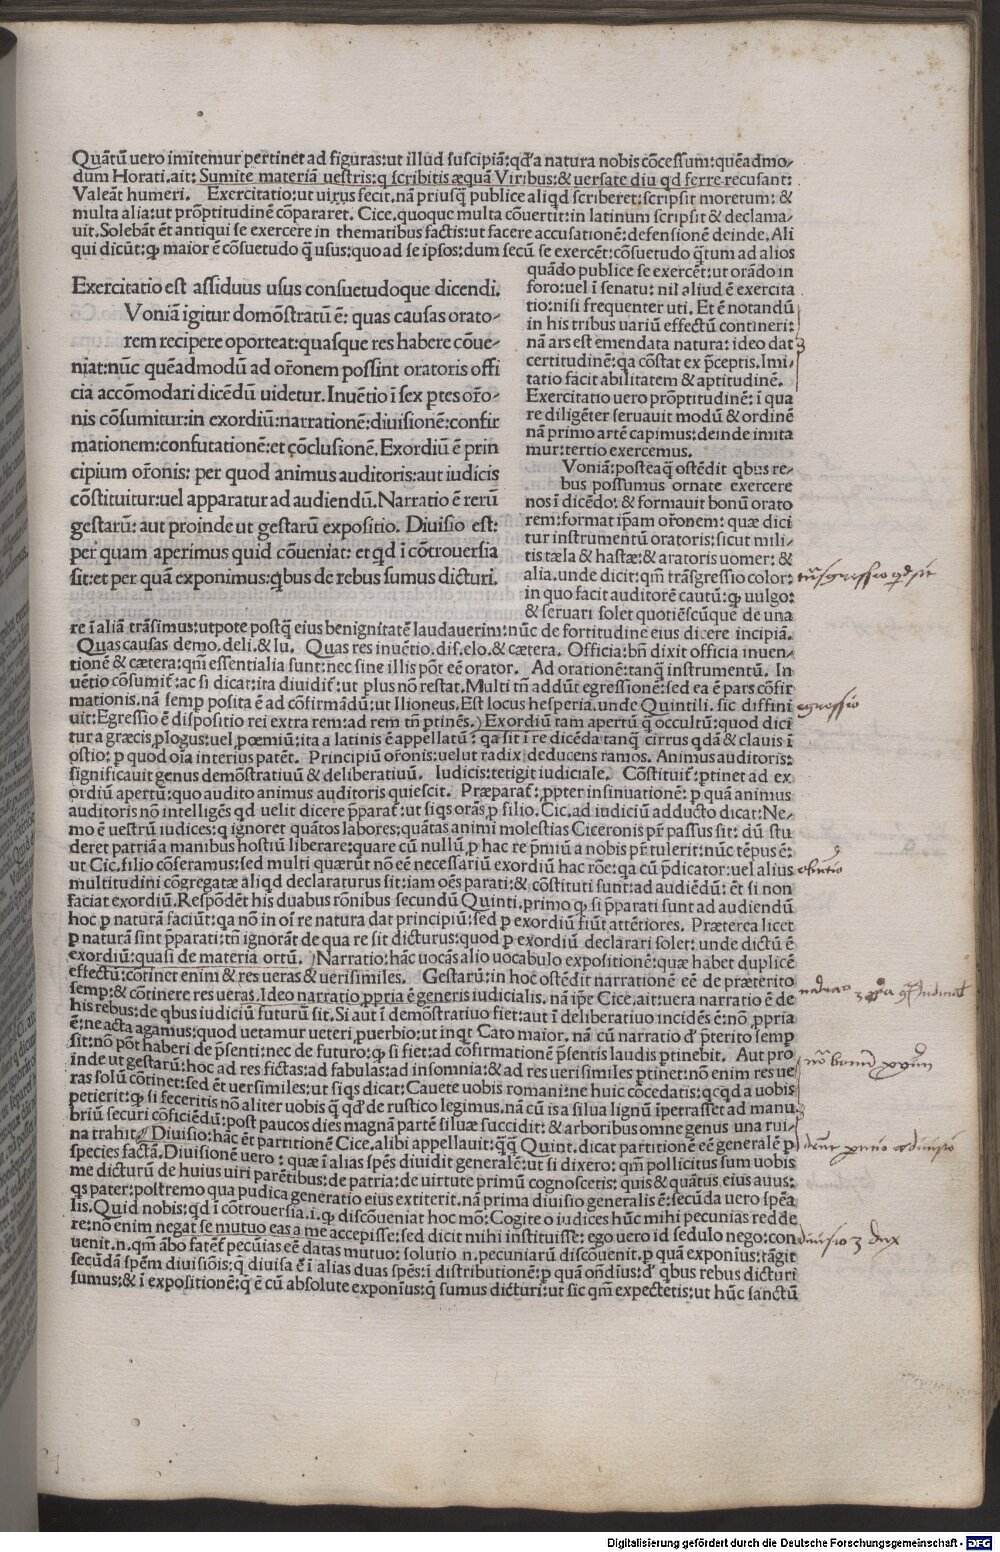 Quātū uero imitemur pertinet ad figuras:ut illud suscipiā:qđ a natura nobis cōcessum:quēadmo-
dum Horati.ait: Sumite materiā uestris:q scribitis æquā Viribus:& uersate diu qd ferre recusant:
Valeāt humeri. Exercitatio:ut uirus fecit.nā priusq̄ publice aliqd scriberet:scripsit moretum: &
multa alia:ut prōptitudinē cōpararet. Cice.quoque multa cōuertit:in latinum scripsit & declama-
uit.Solebāt ēt antiqui se exercere in thematibus factis:ut facere accusationē:defensionē deinde.Ali
qui dicūt:ꝙ maior ē cōsuetudo q̄ usus:quo ad se ipsos:dum secū se exercēt:cōsuetudo q̄tum ad alios
quādo publice se exercēt:ut orādo in
foro:uel ī senatu: nil aliud ē exercita
tio:nisi frequenter uti. Et ē notandū
in his tribus uariū effectū contineri:
nā ars est emendata natura: ideo dat
certitudinē:qa cōstat ex p̄ceptis.Imi-
tatio facit abilitatem & aptitudinē.
Exercitatio uero prōptitudinē: ī qua
re diligēter seruauit modū & ordinē
nā primo artē capimus:deinde imita
mur:tertio exercemus.
Voniā:posteaq̄ ostēdit qbus re-
bus possumus ornate exercere
nos ī dicēdo: & formauit bonū orato
rem:format ip̄am or̄onem: quæ dici
tur instrumentū oratoris:sicut mili-
tis tæla & hastæ:& aratoris uomer: &
alia.unde dicit:qm̄ trāsgressio color:
in quo facit auditorē cautū:ꝙ uulgo:
& seruari solet quotiēscūque de una
Exercitatio est assiduus usus consuetudoque dicendi.
Voniā igitur domōstratū ē: quas causas orato-
rem recipere oporteat:quasque res habere cōue-
niat:nūc quēadmodū ad or̄onem possint oratoris offi
cia accōmodari dicēdū uidetur.Inuētio ī sex ptes or̄o-
nis cōsumitur:in exordiū:narrationē:diuisionē:confir
mationem:confutationē:et cōclusionē.Exordiū ē prin
cipium or̄onis: per quod animus auditoris:aut iudicis
cōstituitur:uel apparatur ad audiendū.Narratio ē rerū
gestarū: aut proinde ut gestarū expositio. Diuisio est:
per quam aperimus quid cōueniat: et qđ ī cōtrouersia
sit:et per quā exponimus:qbus de rebus sumus dicturi.
re ī aliā trāsimus:utpote postq̄ eius benignitatē laudauerim:nūc de fortitudine eius dicere incipiā.
Quas causas demo.deli.& iu. Quas res inuētio.dis.elo.& cætera. Officia:bn̄ dixit officia inuen-
tionē & cætera:qm̄ essentialia sunt:nec sine illis pōt eē orator. Ad orationē:tanq̄ instrumentū. In
uētio cōsumit̄:ac si dicat:ita diuidit̄:ut plus nō restat.Multi tn̄ addūt egressionē:sed ea ē pars cōfir
mationis.nā semp posita ē ad cōfirmādū:ut Ilioneus.Est locus hesperia.unde Quintili. sic diffini
uit:Egressio ē dispositio rei extra rem:ad rem tn̄ ptinēs. Exordiū tam apertū q̄ occultū:quod dici
tur a græcis plogus:uel pœmiū:ita a latinis ē appellatū: qa sit ī re dicēda tanq̄ cirrus qdā & clauis ī
ostio: p quod oīa interius patēt. Principiū or̄onis:uelut radix deducens ramos. Animus auditoris:
significauit genus demōstratiuū & deliberatiuū. Iudicis:tetigit iudiciale. Cōstituit̄:ptinet ad ex
ordiū apertū:quo audito animus auditoris quiescit. Præparat̄: ppter insinuationē: p quā animus
auditoris nō intelligēs qd uelit dicere p̄parat̄: ut siqs orās p filio. Cic.ad iudiciū adducto dicat:Ne-
mo ē uestrū iudices:q ignoret quātos labores:quātas animi molestias Ciceronis pr̄ passus sit: dū stu
deret patriā a manibus hostiū liberare:quare cū nullū p hac re p̄miū a nobis pr̄ tulerit:nūc tēpus ē:
ut Cic.filio cōseramus:sed multi quærūt nō eē necessariū exordiū hac rōne:qa cū p̄dicator:uel alius
multitudini cōgregatæ aliqd declaraturus sit:iam oēs parati:& cōstituti sunt:ad audiēdū: ēt si non
faciat exordiū.Respōdēt his duabus rōnibus secundū Quinti.primo ꝙ si p̄parati sunt ad audiendū
hoc p naturā faciūt:qa nō in oī re natura dat principiū:sed p exordiū fiūt attētiores. Præterea licet
p naturā sint p̄parati:tn̄ ignorāt de qua re sit dicturus:quod p exordiū declarari solet: unde dictū ē
exordiū:quasi de materia ortū. Narratio:hāc uocās alio uocabulo expositionē:quæ habet duplicē
effectū:cōtinet enim & res ueras & uerisimiles. Gestarū:in hoc ostēdit narrationē eē de præterito
semp:& cōtinere res ueras.Ideo narratio ppria ē generis iudicialis. nā ip̄e Cice.ait:uera narratio ē de
his rebus:de qbus iudiciū futurū sit.Si aut ī demōstratiuo fiet:aut ī deliberatiuo incidēs ē:nō ppria
ē:ne acta agamus:quod uetamur ueteri puerbio:ut inqt Cato maior. nā cū narratio đ p̄terito semp
sit:nō pōt haberi de p̄senti:nec de futuro:ꝙ si fiet:ad cōfirmationē p̄sentis laudis ptinebit. Aut pro
inde ut gestarū:hoc ad res fictas:ad fabulas:ad insomnia:& ad res uerisimiles ptinet:nō enim res ue
ras solū cōtinet:sed ēt uersimiles:ut siqs dicat:Cauete uobis romani:ne huic cōcedatis:qcqd a uobis
petierit:ꝙ si feceritis nō aliter uobis q̄ qđ de rustico legimus.nā cū is a silua lignū īpetrasset ad manu
briū securi cōficiēdū:post paucos dies magnā partē siluæ succidit: & arboribus omne genus una rui-
na trahit. Diuisio:hāc ēt partitionē Cice.alibi appellauit:q̄q̄ Quint.dicat partitionē eē generalē p
species factā.Diuisionē uero: quæ ī alias spēs diuidit generalē:ut si dixero: qm̄ pollicitus sum uobis
me dicturū de huius uiri parētibus:de patria:de uirtute primū cognoscetis: quis & quātus eius auus:
qs pater:postremo qua pudica generatio eius extiterit.nā prima diuisio generalis ē:secūda uero spēa
lis.Quid nobis:qđ ī cōtrouersia.i.ꝙ discōueniat hoc mō:Cogite o iudices hūc mihi pecunias redde
re:nō enim negat se mutuo eas a me accepisse:sed dicit mihi instituisse: ego uero id sedulo nego:con
uenit.n.qm̄ ābo fatēt̄ pecūias eē datas mutuo: solutio n.pecuniarū discōuenit.p quā exponīus:tāgit
secūdā spēm diuisiōis:q̄ diuisa ē ī alias duas spēs:ī distributionē:p quā on̄dīus:đ qbus rebus dicturi
sumus:& ī expositionē:q̄ ē cū absolute exponīus:q̄ sumus dicturi:ut sic qm̄ expectetis:ut hūc sanctū
egressio
Digitalisierung gefördert durch die Deutsche Forschungsgemeinschaft - DFG